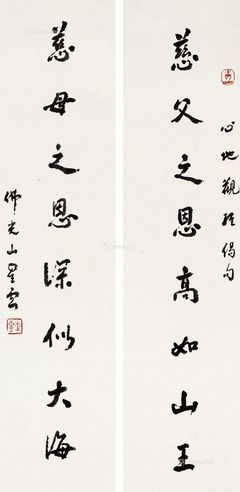 心地觀經偈句
慈父之恩高如山王
慈母之恩深似大海
佛光山星雲